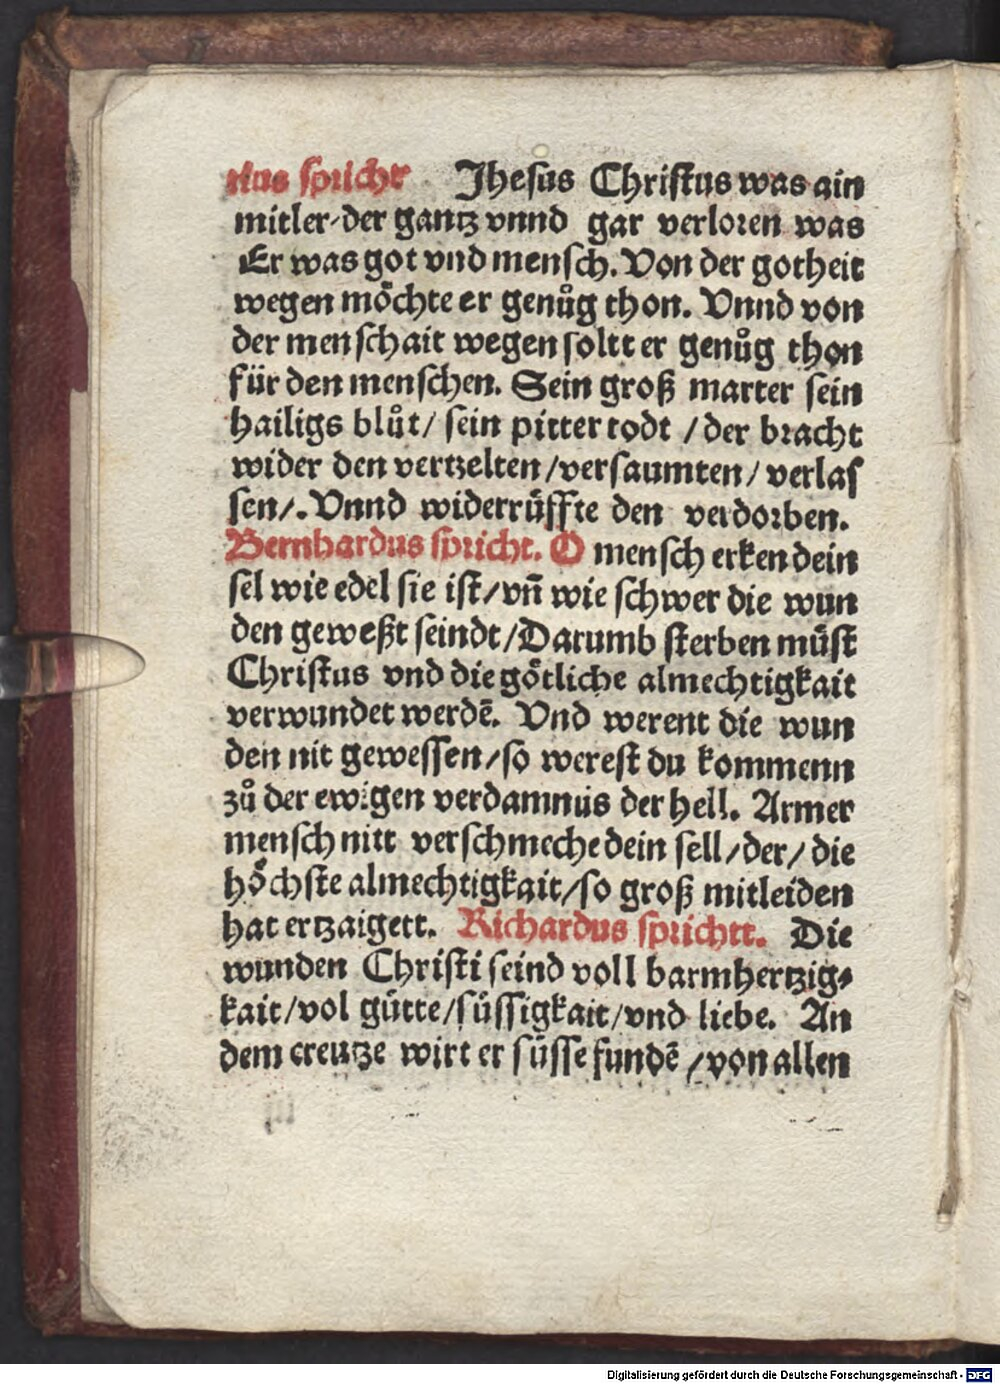 rius spricht Jhesus Christus was ain
mitler der gantz vnnd gar verloren was
Er was got vnd mensch. Von der gotheit
wegen möchte er genůg thon. Vnnd von
der menschait wegen soltt er genůg thon
für den menschen. Sein groß marter sein
hailigs blůt/ sein pitter todt /der bracht
wider den vertzelten/versaumten/ verlas
sen/. Vnnd widerrüffte den verdorben.
Bernhardus spricht. O mensch erken dein
sel wie edel sie ist/vn̄ wie schwer die wun
den geweßt seindt/Darumb sterben müst
Christus vnd die götliche almechtigkait
verwundet werdē. Vnd werent die wun
den nit gewessen/so werest du kommenn
zů der ewigen verdamnus der hell. Armer
mensch nitt verschmeche dein sell/der/ die
höchste almechtigkait/so groß mitleiden
hat ertzaigett. Richardus sprichtt. Die
wunden Christi seind voll barmhertzig-
kait/vol gütte/süssigkait/vnd liebe. An
dem creutze wirt er süsse fundē /von allen
Digitalisierung gefördert durch die Deutsche Forschungsgemeinschaft - DFG